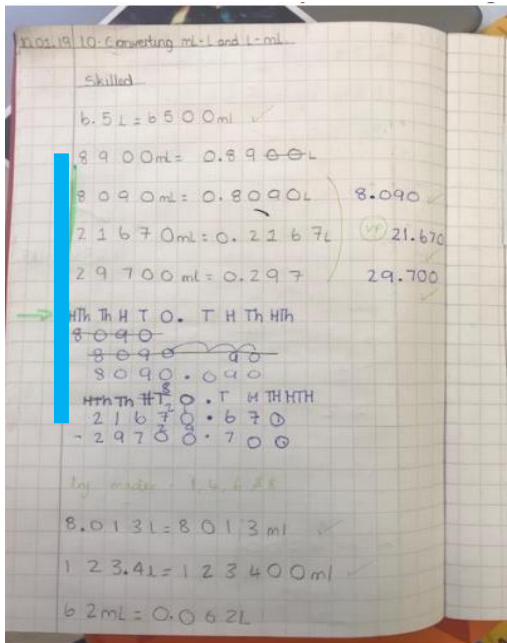 10. Converting mL-L and L-mL
Skilled
6.5L = 6500ml ✓
8900mL = 0.8900L
8090mL = 0.8090L 8.090 ✓
21670mL = 0.2167L VF 21.670
29700mL = 0.297 29.700 ✓
→ HTh Th H T O. T H Th HTh
8090
8090 90
8090.090
HTh Th H T O. T H TH HTH
21670.670
- 29700.700
8.013L = 8013ml ✓
123.4L = 123400ml ✓
62mL = 0.062L